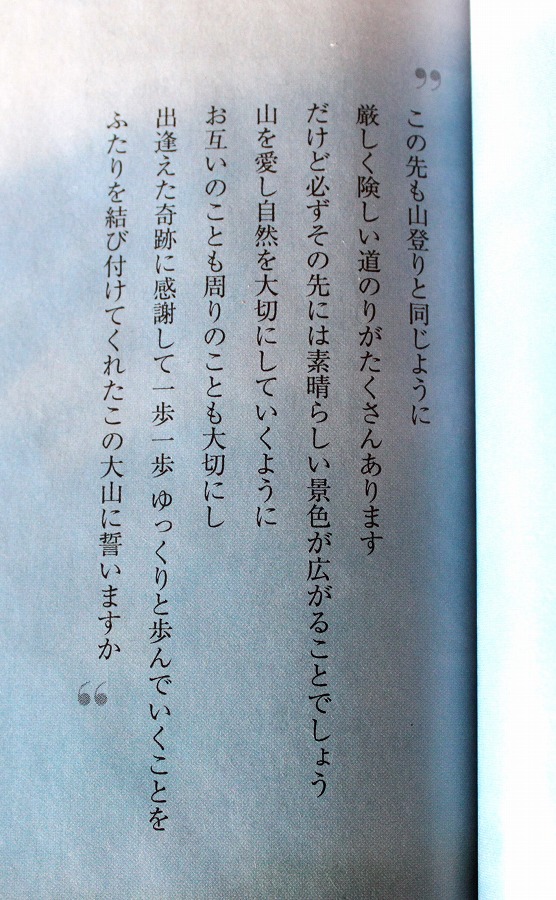 ”
この先も山登りと同じように
厳しく険しい道のりがたくさんあります
だけど必ずその先には素晴らしい景色が広がることでしょう
山を愛し自然を大切にしていくように
お互いのことも周りのことも大切にし
出逢えた奇跡に感謝して一歩一歩 ゆっくりと歩んでいくことを
ふたりを結び付けてくれたこの大山に誓いますか
“